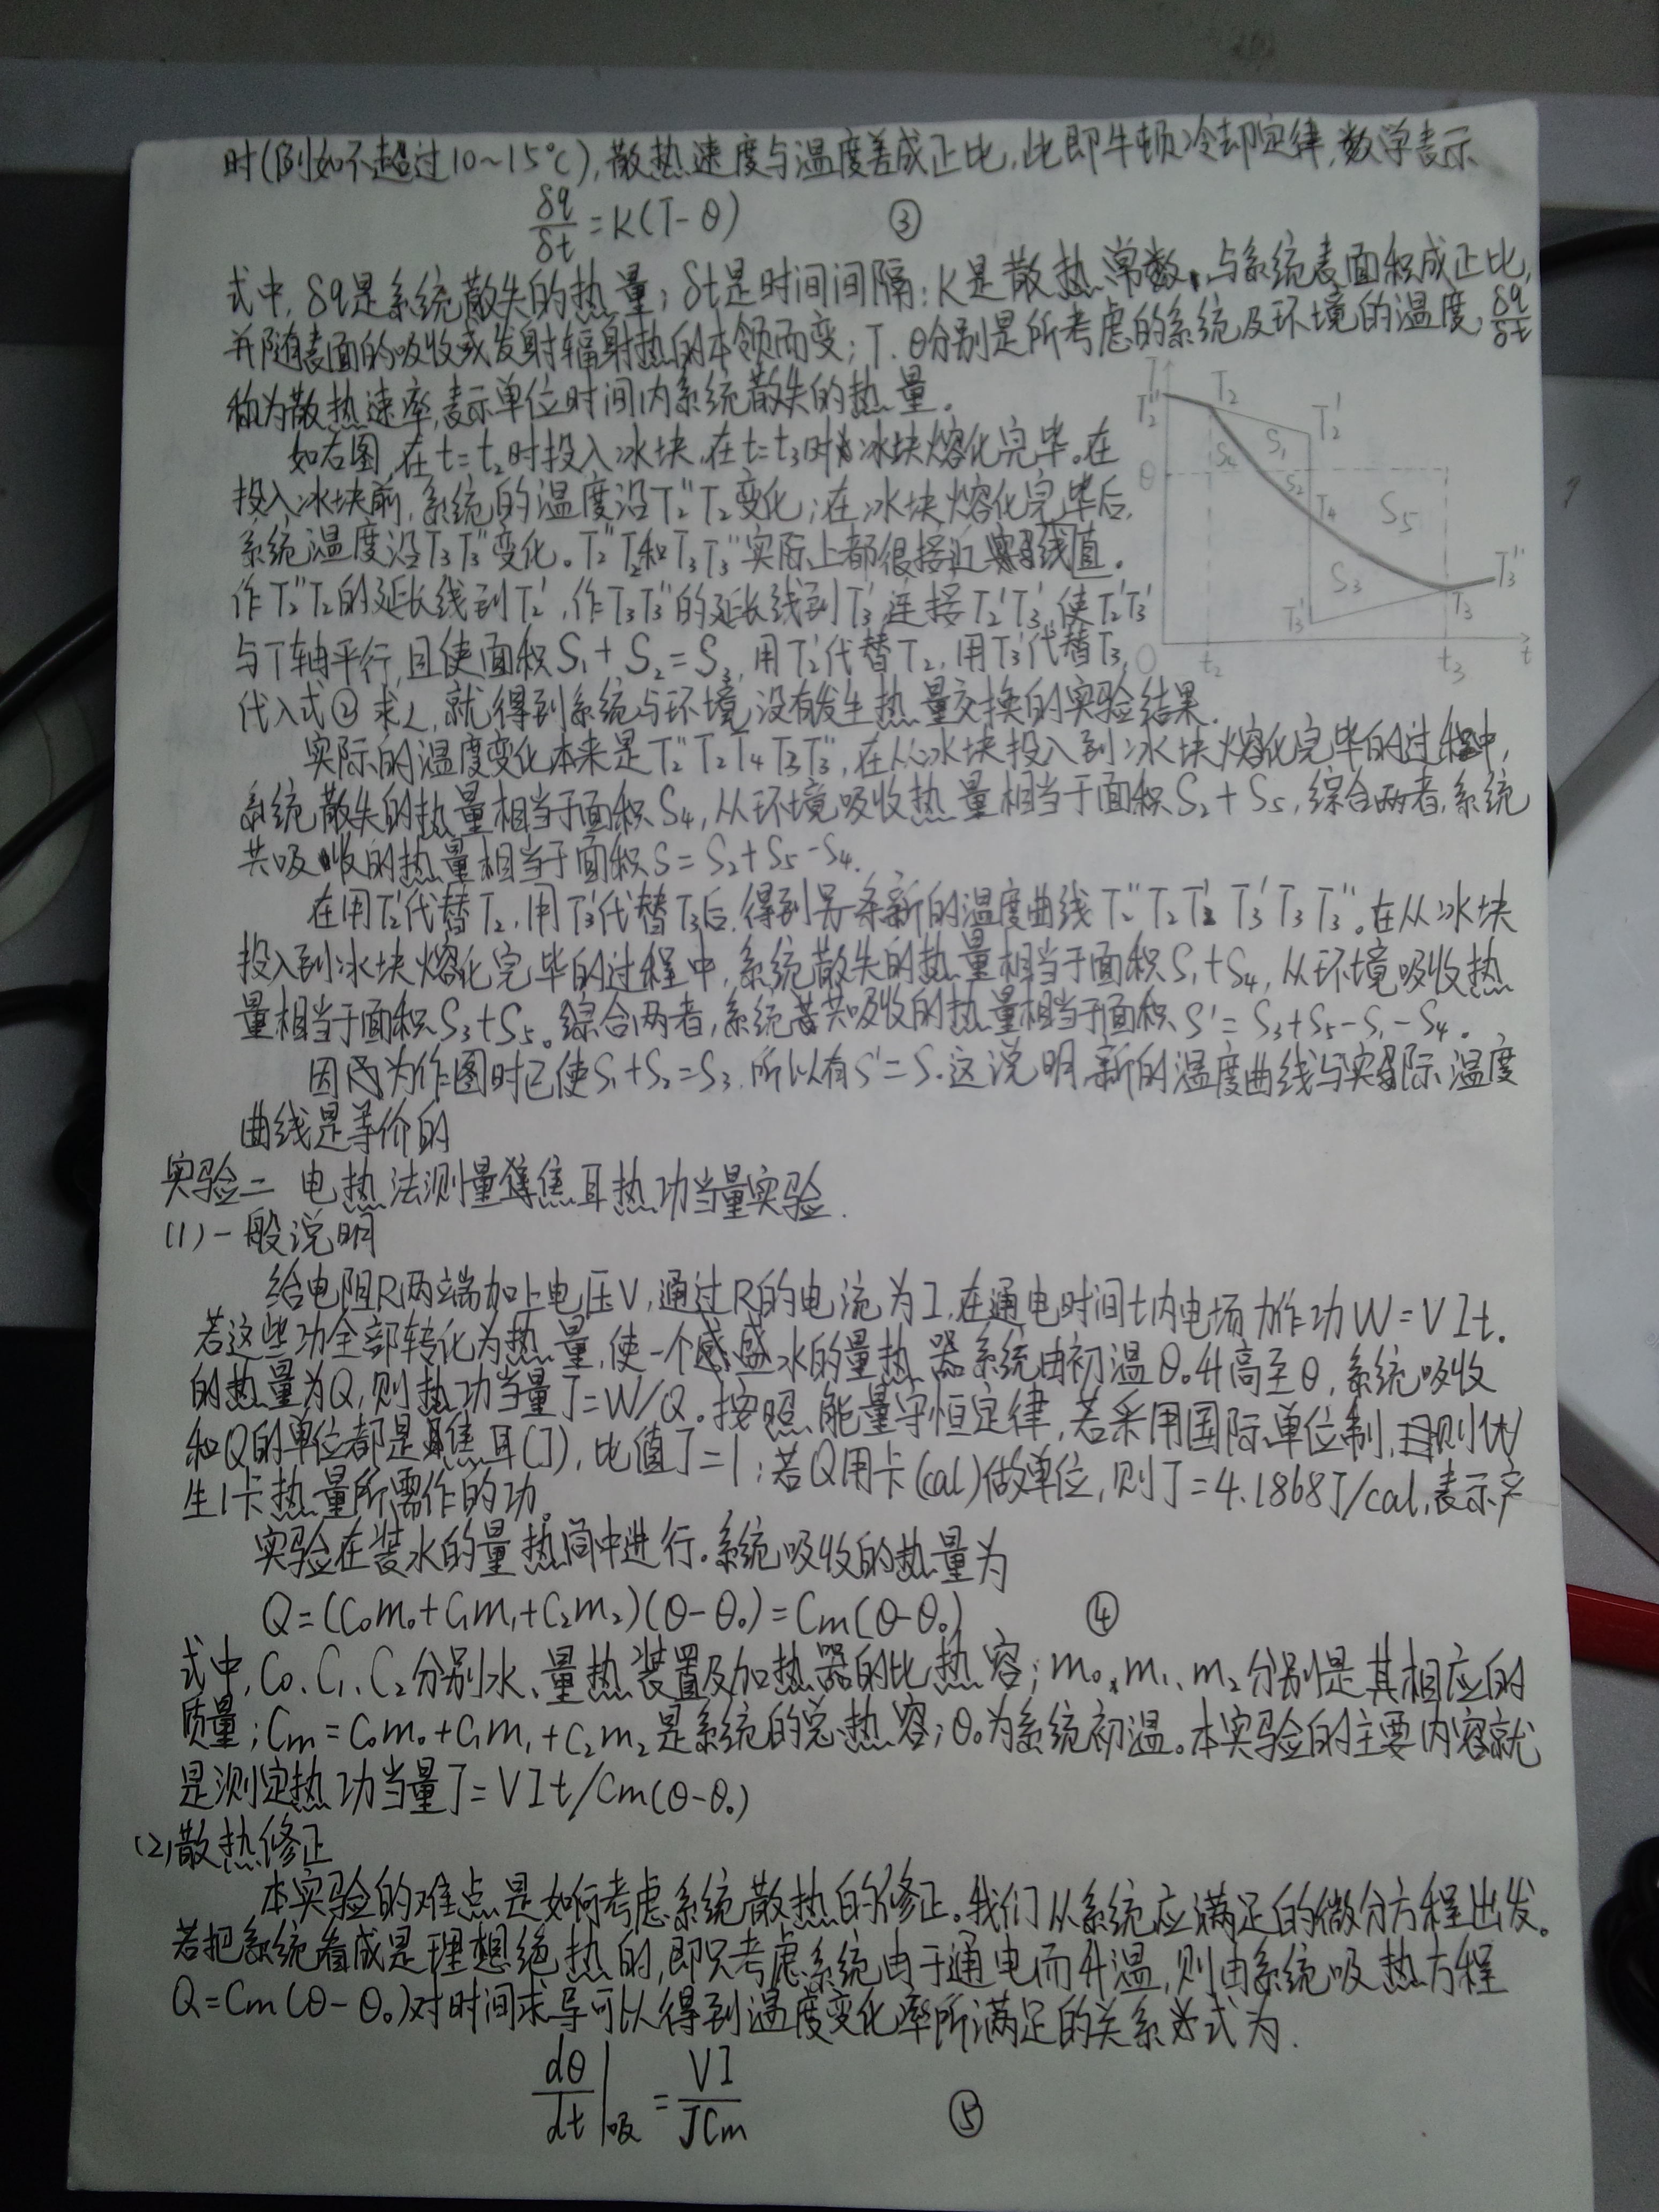 时(例如不超过10~15℃),散热速度与温度差成正比,此即牛顿冷却定律,数学表示
δq/δt = K(T-θ) ③
式中,δq是系统散失的热量;δt是时间间隔;K是散热常数,与系统表面积成正比,
并随表面的吸收或发射辐射热的本领而变;T、θ分别是所考虑的系统及环境的温度,δq/δt
称为散热速率,表示单位时间内系统散失的热量。
如右图,在t=t₂时投入冰块,在t=t₃时冰块熔化完毕。在
投入冰块前,系统的温度沿T₂″T₂变化;在冰块熔化完毕后,
系统温度沿T₃T₃″变化。T₂″T₂和T₃T₃″实际上都很接近直线。
作T₂″T₂的延长线到T₂′,作T₃T₃″的延长线到T₃′,连接T₂′T₃′,使T₂′T₃′
与T轴平行,且使面积S₁+S₂=S₃,用T₂′代替T₂,用T₃′代替T₃,
代入式②求L,就得到系统与环境没有发生热量交换的实验结果.
T
T₂″
T₂
T₂′
S₁
S₄
θ
S₂
T₄
S₅
S₃
T₃″
T₃′
T₃
O
t₂
t₃
t
实际的温度变化本来是T₂″T₂T₄T₃T₃″,在从冰块投入到冰块熔化完毕的过程中,
系统散失的热量相当于面积S₄,从环境吸收热量相当于面积S₂+S₅,综合两者,系统
共吸收的热量相当于面积S=S₂+S₅-S₄.
在用T₂′代替T₂,用T₃′代替T₃后,得到另一条新的温度曲线T₂″T₂T₂′T₃′T₃T₃″。在从冰块
投入到冰块熔化完毕的过程中,系统散失的热量相当于面积S₁+S₄,从环境吸收热
量相当于面积S₃+S₅。综合两者,系统共吸收的热量相当于面积S′=S₃+S₅-S₁-S₄.
因为作图时已使S₁+S₂=S₃,所以有S′=S.这说明,新的温度曲线与实际温度
曲线是等价的
实验二 电热法测量焦耳热功当量实验.
(1)一般说明
给电阻R两端加上电压V,通过R的电流为I,在通电时间t内电场力作功W=VIt.
若这些功全部转化为热量,使一个盛水的量热器系统由初温θ₀升高至θ,系统吸收
的热量为Q,则热功当量J=W/Q。按照能量守恒定律,若采用国际单位制,则W
和Q的单位都是焦耳(J),比值J=1;若Q用卡(cal)做单位,则J=4.1868J/cal,表示产
生1卡热量所需作的功。
实验在装水的量热筒中进行。系统吸收的热量为
Q=(C₀m₀+C₁m₁+C₂m₂)(θ-θ₀)=Cm(θ-θ₀) ④
式中,C₀、C₁、C₂分别水、量热装置及加热器的比热容;m₀、m₁、m₂分别是其相应的
质量;Cm=C₀m₀+C₁m₁+C₂m₂是系统的总热容;θ₀为系统初温。本实验的主要内容就
是测定热功当量J=VIt/Cm(θ-θ₀)
(2)散热修正
本实验的难点是如何考虑系统散热的修正。我们从系统应满足的微分方程出发。
若把系统看成是理想绝热的,即只考虑系统由于通电而升温,则由系统吸热方程
Q=Cm(θ-θ₀)对时间求导可以得到温度变化率所满足的关系式为.
dθ/dt|吸 = VI/JCm ⑤